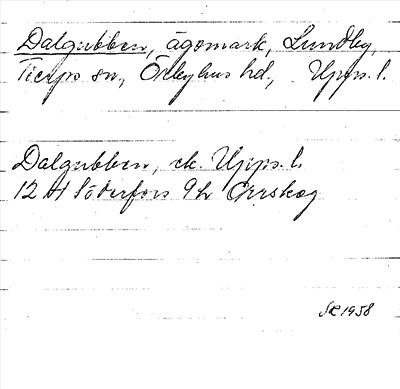 Dalgubben, ägomark, Lundby,
Tierps sn., Örbyhus hd., Upps. l.
Dalgubben, ek. Upps. l.
12 H Söderfors 9h Orrskog
SK 1958